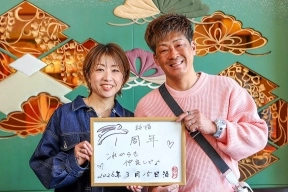 結婚
1周年♡
これからも
仲良しでね
2026年3月15日